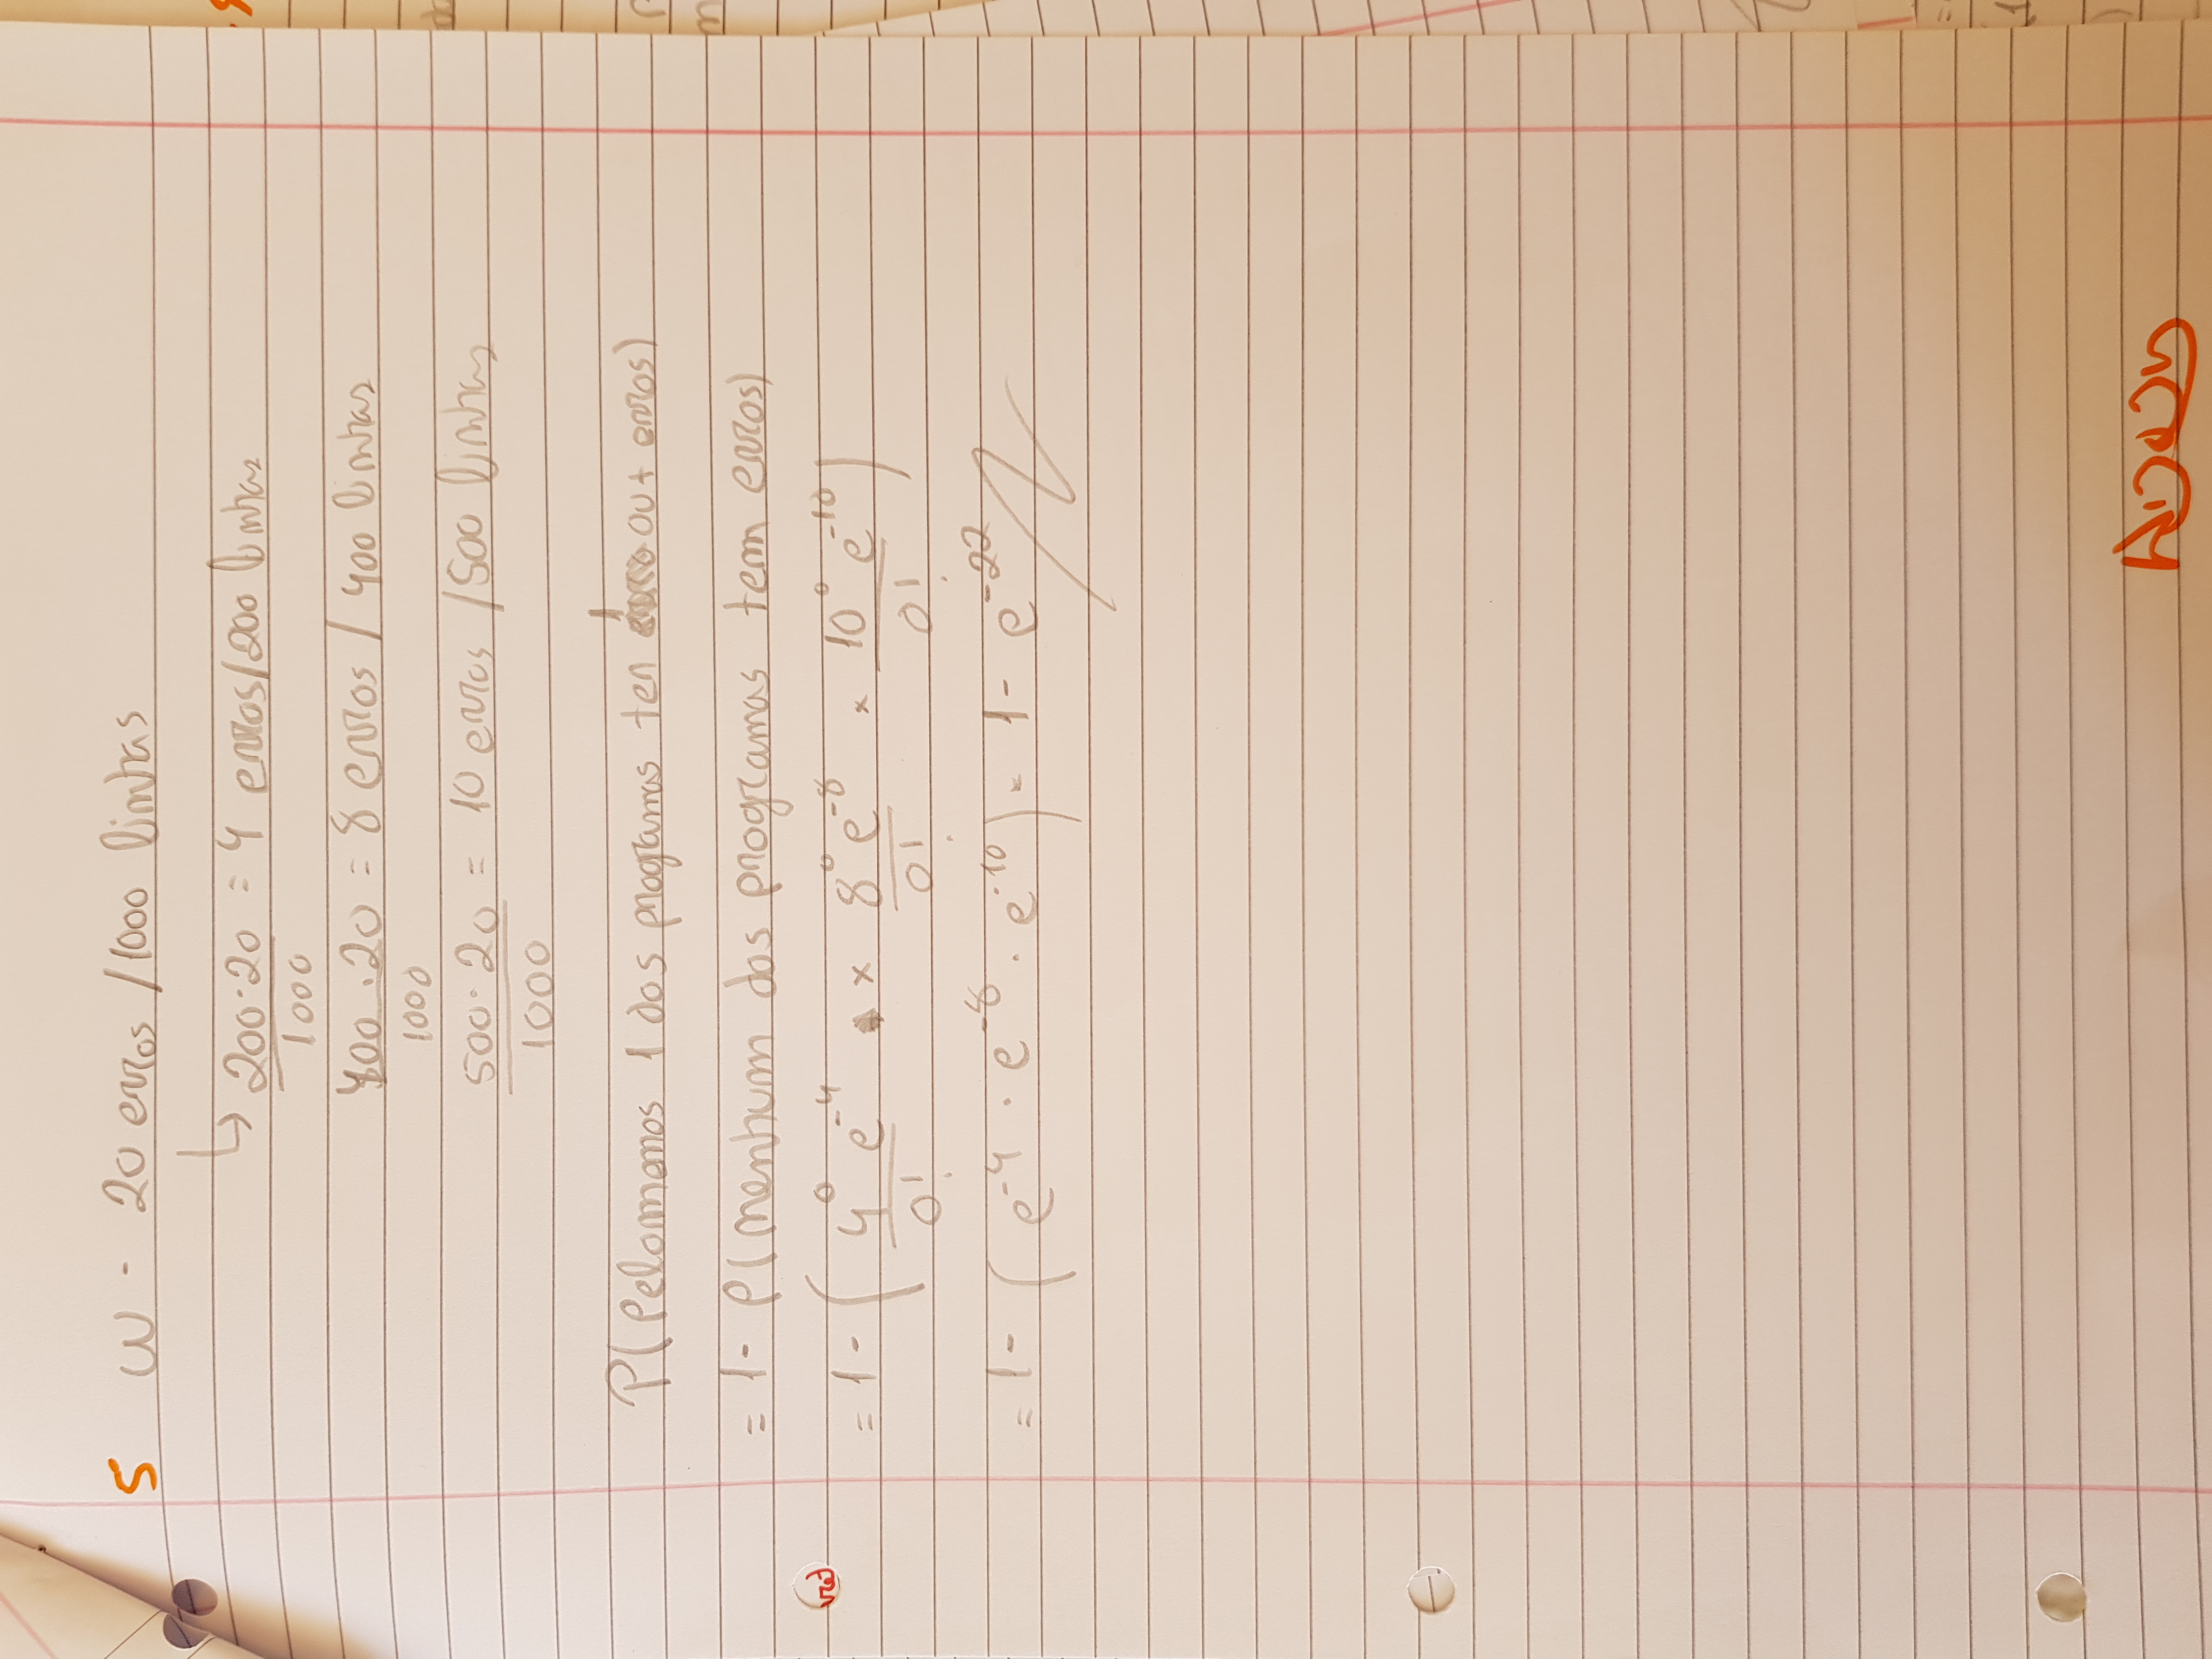 5 W - 20 erros / 1000 linhas
↳ 200·20 / 1000 = 4 erros/200 linhas
400·20 / 1000 = 8 erros / 400 linhas
500·20 / 1000 = 10 erros / 500 linhas
P(Pelomenos 1 dos programas ter 1 ou + erros)
= 1- P(nenhum dos programas tem erros)
= 1 - ( 4⁰ e⁻⁴ / 0! × 8⁰ e⁻⁸ / 0! × 10⁰ e⁻¹⁰ / 0! )
= 1 - ( e⁻⁴ · e⁻⁸ · e⁻¹⁰ ) = 1 - e⁻²²